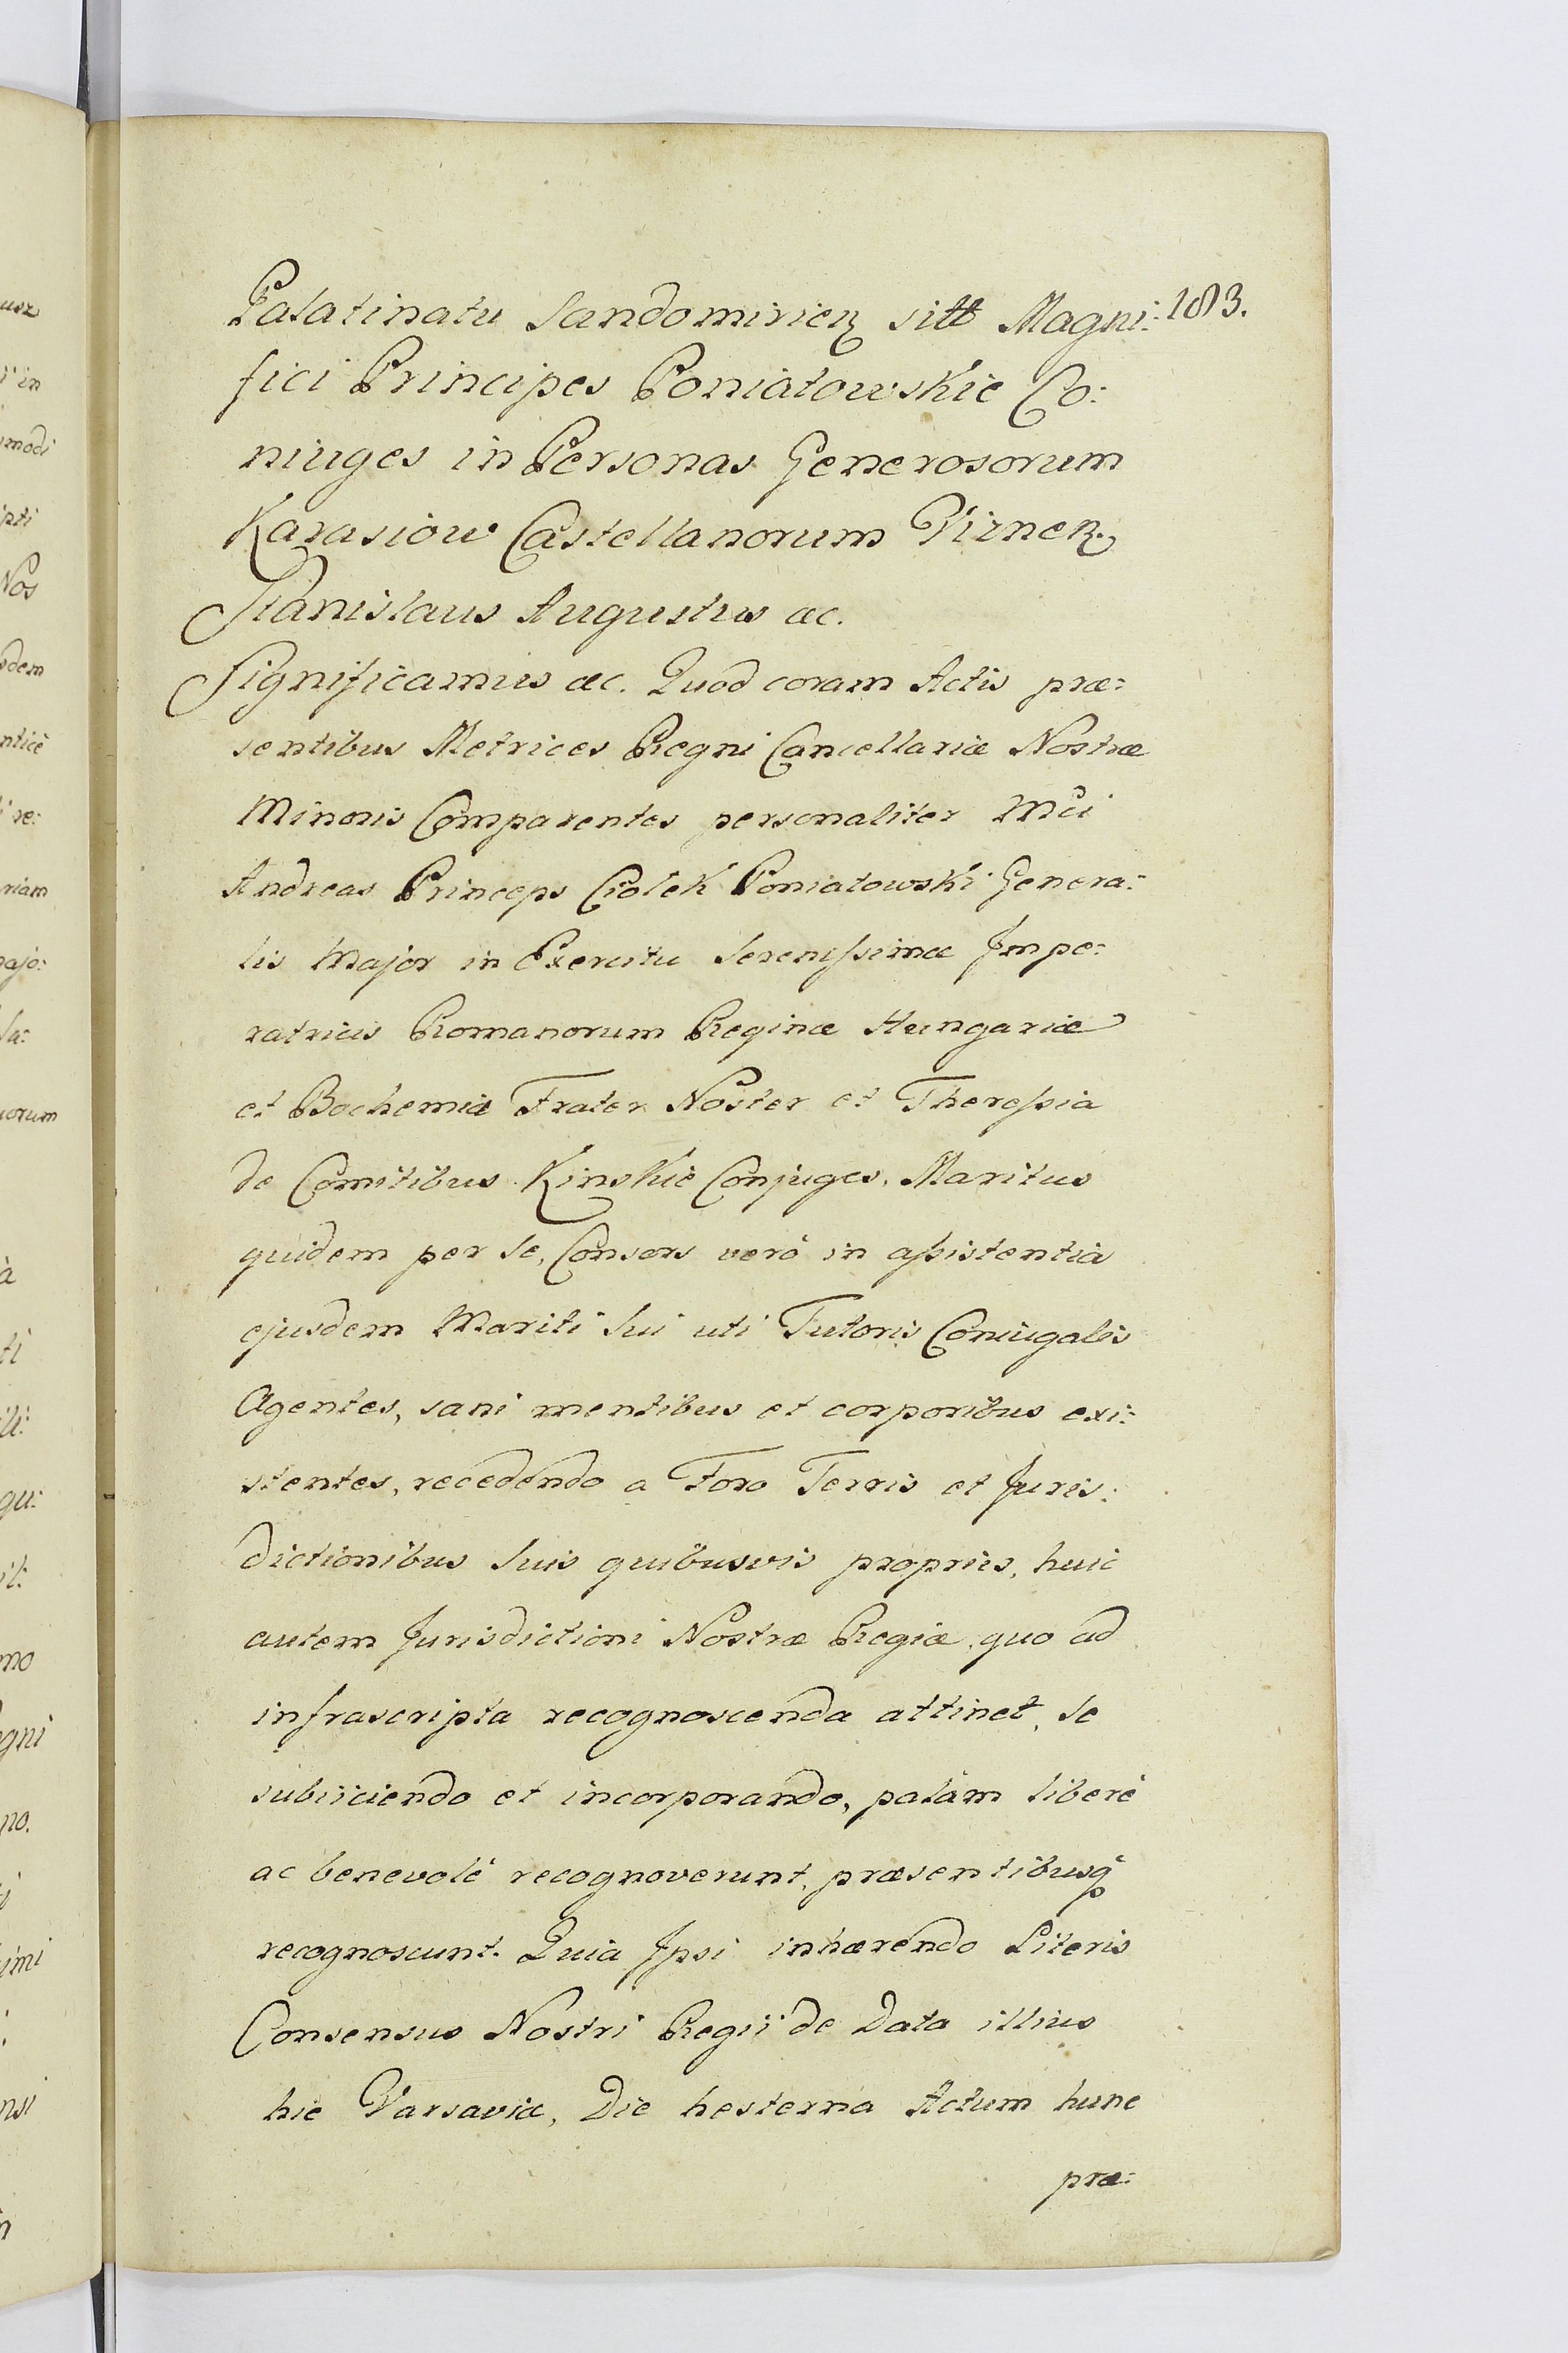 Palatinatu Sandomirien sitt Magni: 183.
fici Principes Poniatowskie Co:
niuges in Personas Generosorum
Karasiow Castellanorum Viznen.
Stanislaus Augustus &c.
Significamus &c. Quod coram Actis præ:
sentibus Metrices Regni Cancellariæ Nostræ
Minoris Comparentes personaliter Mci
Andreas Princeps Ciołek Poniatowski Genera:
lis Major in Exercitu Serenissimæ Impe:
ratricis Romanorum Reginæ Hungariæ
et Bochemiæ Frater Noster et Theressia
de Comitibus Kinskie Conjuges, Maritus
quidem per se, Consors verò in assistentia
ejusdem Mariti Sui uti Tutoris Coniugalis
Agentes, sani mentibus et corporibus exi:
stentes, recedendo a Foro Terris et Juris:
dictionibus Suis quibusvis propriis, huic
autem Jurisdictioni Nostræ Regiæ, quo ad
infrascripta recognoscenda attinet, se
subiiciendo et incorporando, palàm liberè
ac benevolè recognoverunt, præsentibusq
recognoscunt. Quia Ipsi inhærendo Literis
Consensus Nostri Regii de Data illius
hic Varsaviæ, Die hesterna Actum hunc
præ:
usz
i in
modi
ipti
Nos
sdem
nticè
i re:
riam
najo:
la:
uorum
à
ti
ili:
qu:
il:
mo
gni
no.
imi
nsi